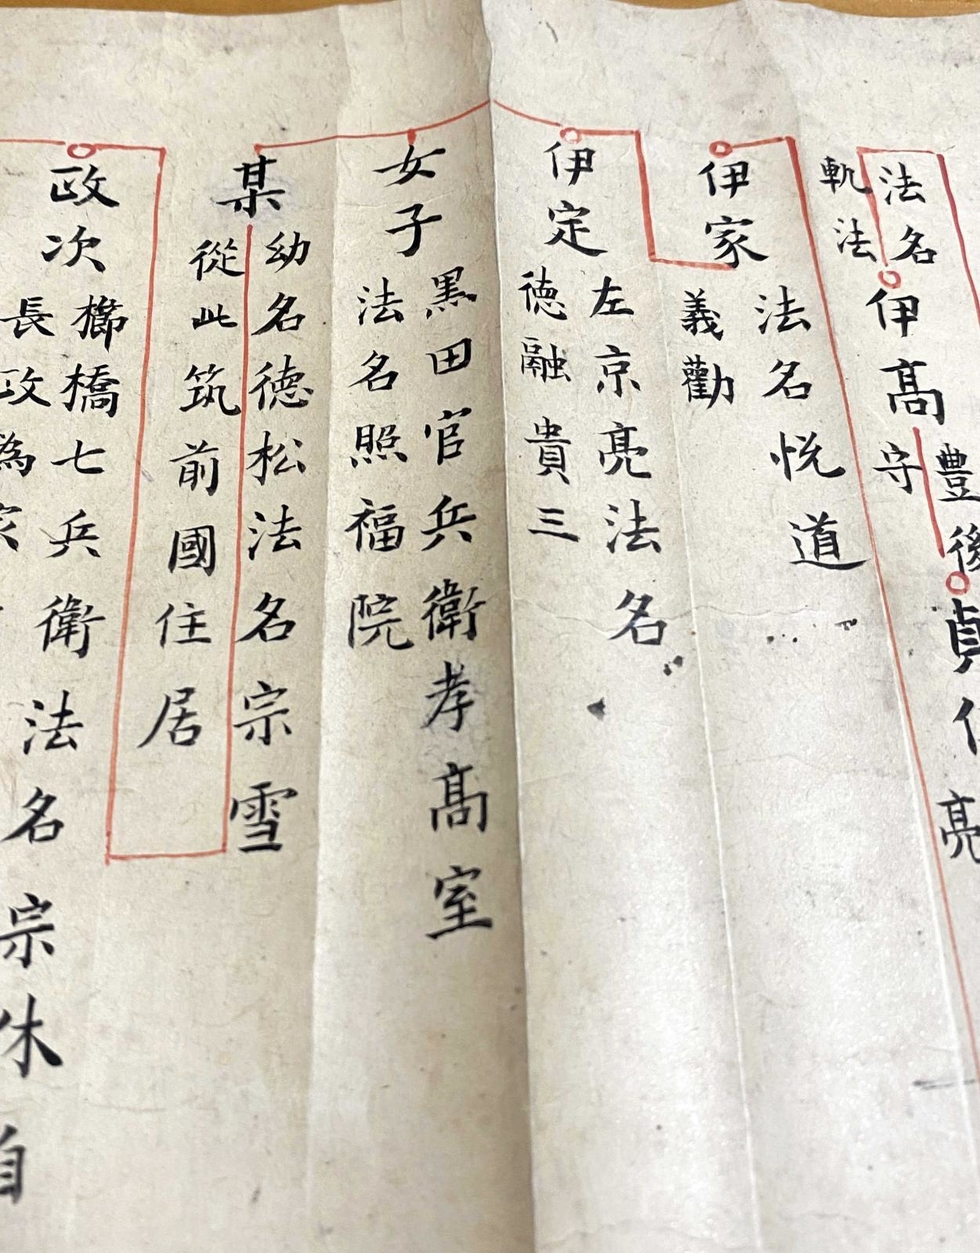 貞
亮
法名
軌法
伊髙
豊後
守
伊家
法名悦道
義勸
伊定
左京亮法名
徳融貴三
女子
黒田官兵衛孝髙室
法名照福院
某
幼名徳松法名宗雪
從此筑前國住居
政次
櫛橋七兵衛法名宗休自
長政為家